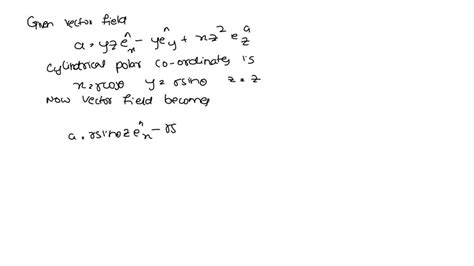 Given vector field
a = yz ê_x - y ê_y + xz² ê_z
Cylindrical polar co-ordinates is
x = rcosθ y = rsinθ z = z
Now vector field becomes
a = rsinθz ê_x - rs